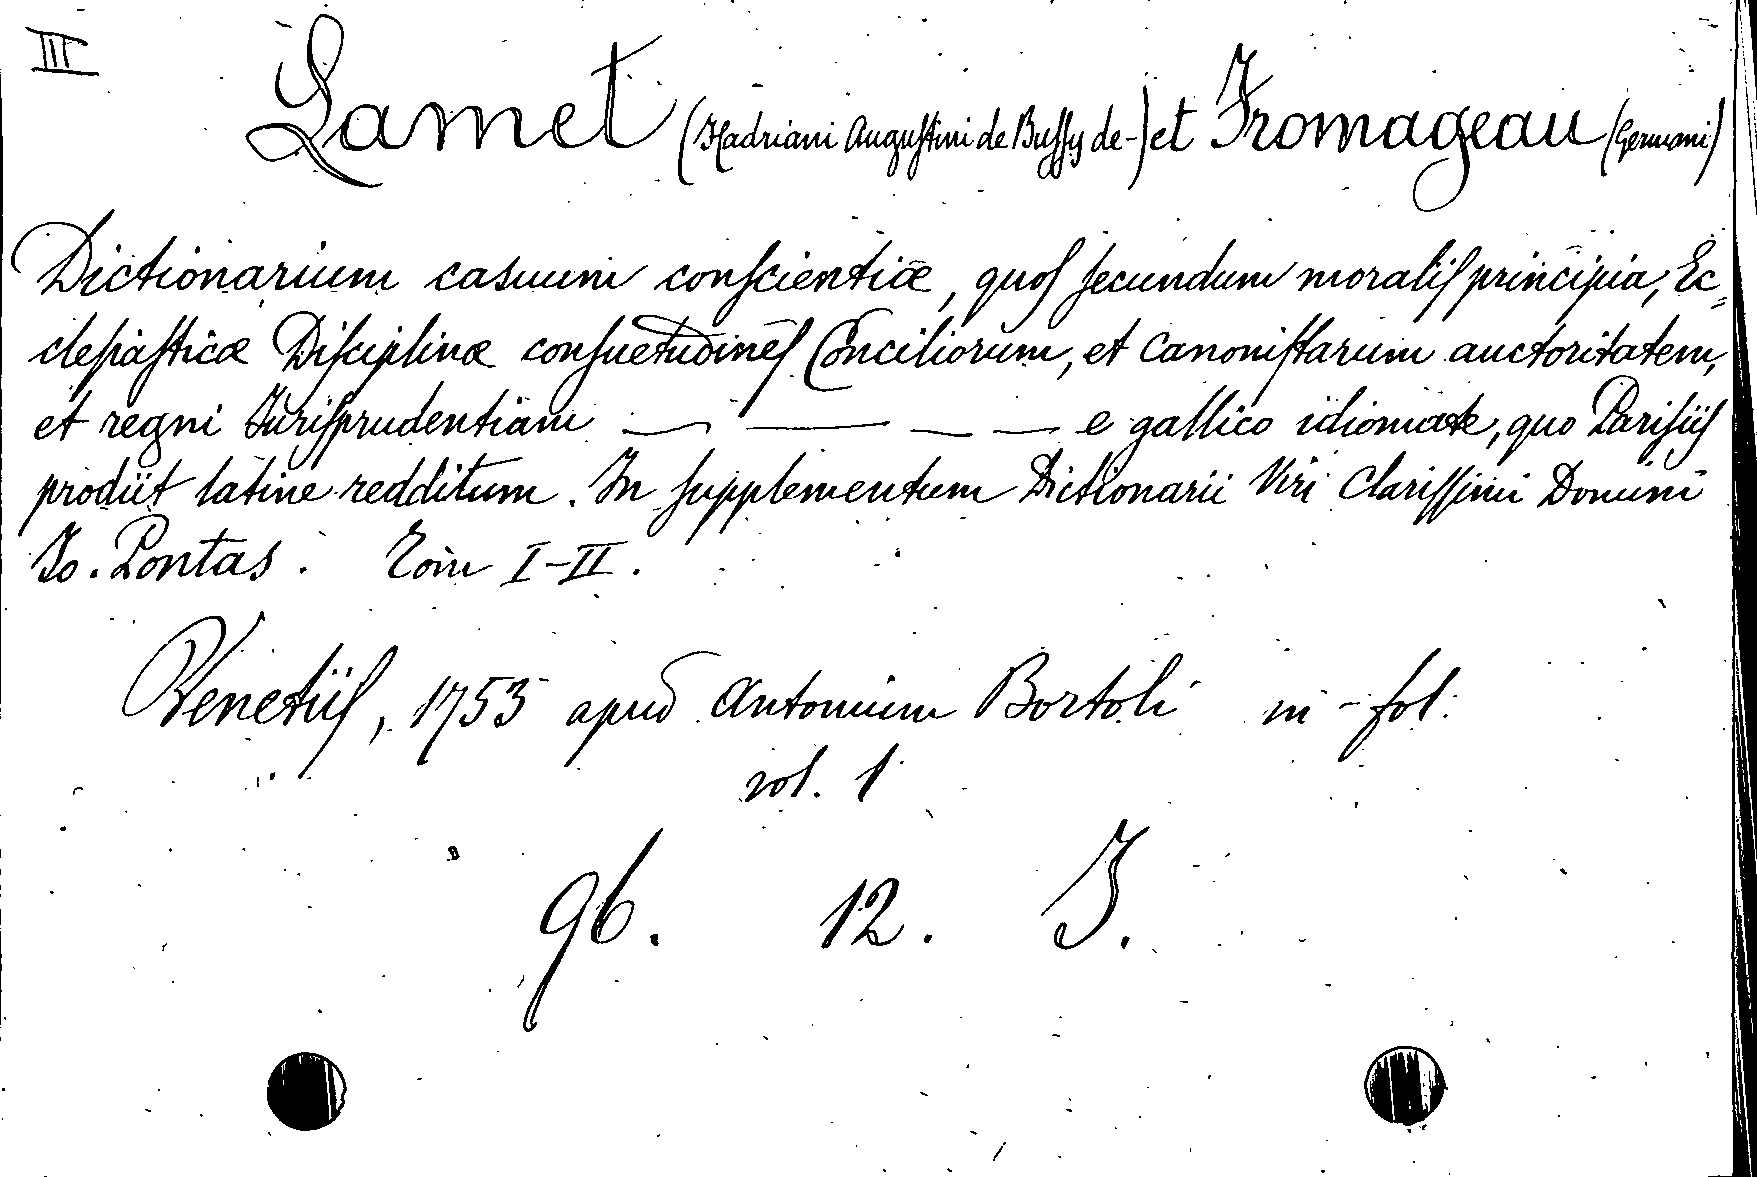 III
Lamet (Hadriani Augustini de Bussy de-) et Fromageau (Germani)
Dictionarium casuum conscientiæ, quos secundum moralis principia, Ec-
clesiasticæ Disciplinæ consuetudines Conciliorum, et canonistarum auctoritatem,
et regni Jurisprudentiam — — — — e gallico idiomate, quo Parisiis
prodiit latine redditum. In supplementum Dictionarii Viri Clarissimi Domini
Jo. Pontas. Tom I-II.
Venetiis, 1753 apud Antonium Bortoli in-fol.
vol. 1
96. 12. J.